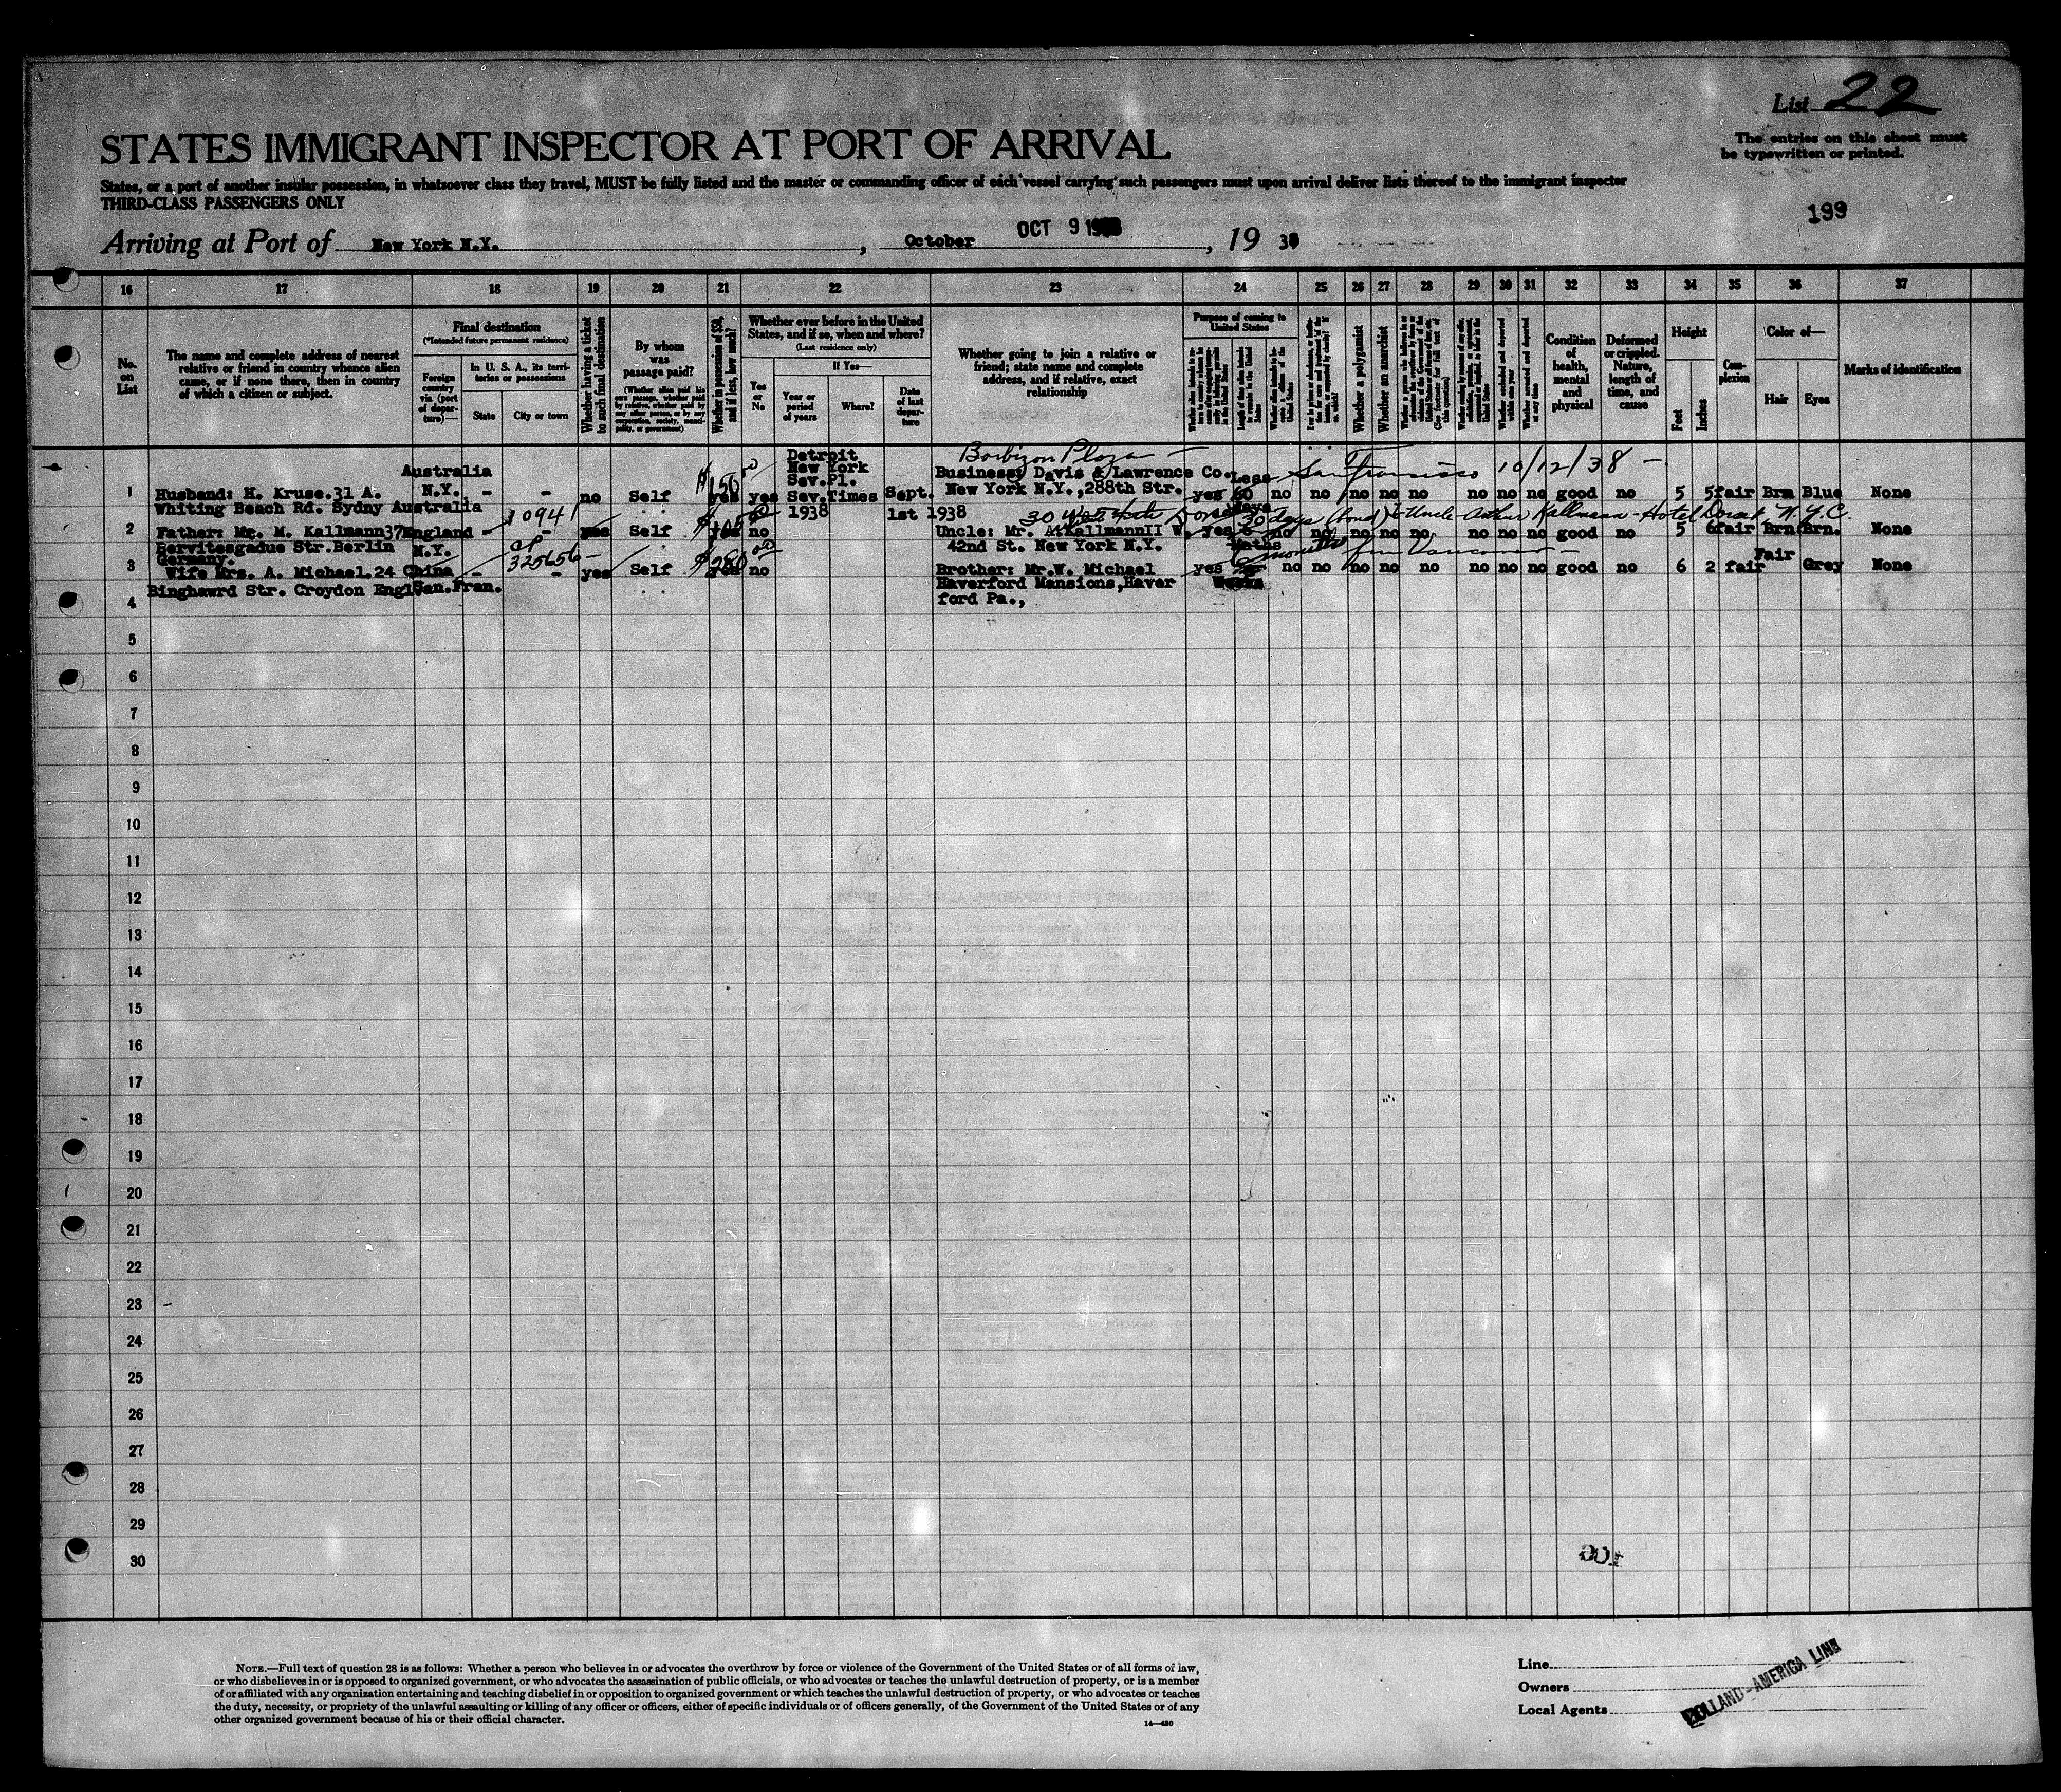 List 22
STATES IMMIGRANT INSPECTOR AT PORT OF ARRIVAL
The entries on this sheet must
be typewritten or printed.
States, or a port of another insular possession, in whatsoever class they travel, MUST be fully listed and the master or commanding officer of each vessel carrying such passengers must upon arrival deliver lists thereof to the immigrant inspector
THIRD-CLASS PASSENGERS ONLY
199
Arriving at Port of New York N.Y. , October OCT 9 , 19 38
16 17 18 19 20 21 22 23 24 25 26 27 28 29 30 31 32 33 34 35 36 37
No. on List
The name and complete address of nearest relative or friend in country whence alien came, or if none there, then in country of which a citizen or subject.
Final destination
(*Intended future permanent residence)
Foreign country via (port of departure)—
In U. S. A., its territories or possessions
State
City or town
Whether having a ticket to such final destination
By whom was passage paid?
(Whether alien paid his own passage, whether paid by relative, whether paid by any other person, or by any corporation, society, municipality, or government)
Whether in possession of $50, and if less, how much?
Whether ever before in the United States, and if so, when and where?
(Last residence only)
Yes or No
If Yes—
Year or period of years
Where?
Date of last departure
Whether going to join a relative or friend; state name and complete address, and if relative, exact relationship
Purpose of coming to United States
Whether a polygamist
Whether an anarchist
Condition of health, mental and physical
Deformed or crippled. Nature, length of time, and cause
Height
Feet
Inches
Complexion
Color of—
Hair
Eyes
Marks of identification
Barbizon Plaza —
Detroit
Australia New York Business; Davis & Lawrence Co. Less San Francisco 10/12/38 —
Sev.Pl.
1 Husband: H. Kruse.31 A. N.Y. - - no Self $150 yes yes Sev.Times Sept. New York N.Y.,288th Str. yes 60 no no no no no no no no good no 5 5 fair Brn Blue None
Whiting Beach Rd. Sydny Australia 1938 1st 1938 Days
30 days (bond) Uncle Arthur Kallmann - Hotel N.Y.C.
2 Father: Mr. M. Kallmann37 England - yes Self yes no Uncle: Mr. A.KallmannII W. yes 6 no no no no no no no no good no 5 6 fair Brn Brn. None
Servitesgadue Str.Berlin N.Y. 42nd St. New York N.Y.
Germany. 325656 months from Vancouver —
3 Wife Mrs. A. Michael.24 China - - yes Self $280 yes no Brother: Mr.W. Michael yes no no no no no no no no good no 6 2 fair Fair Grey None
Binghawrd Str. Croydon Engl San.Fran. Haverford Mansions,Haver Weeks
4 ford Pa.,
5
6
7
8
9
10
11
12
13
14
15
16
17
18
19
20
21
22
23
24
25
26
27
28
29
30
NOTE.—Full text of question 28 is as follows: Whether a person who believes in or advocates the overthrow by force or violence of the Government of the United States or of all forms of law,
or who disbelieves in or is opposed to organized government, or who advocates the assassination of public officials, or who advocates or teaches the unlawful destruction of property, or is a member
of or affiliated with any organization entertaining and teaching disbelief in or opposition to organized government or which teaches the unlawful destruction of property, or who advocates or teaches
the duty, necessity, or propriety of the unlawful assaulting or killing of any officer or officers, either of specific individuals or of officers generally, of the Government of the United States or of any
other organized government because of his or their official character.
14—480
Line
Owners
Local Agents
HOLLAND-AMERICA LINE